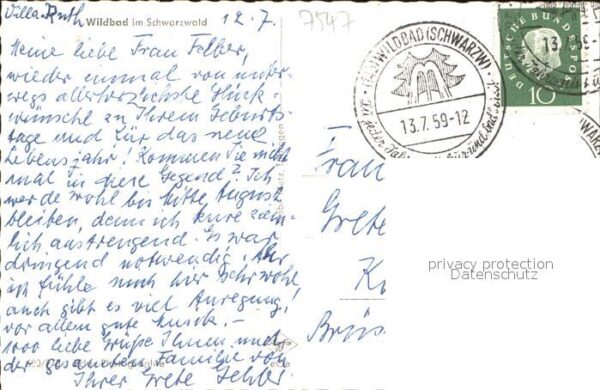 Villa Ruth
Wildbad im Schwarzwald
12.7.
7547
Meine liebe Frau Felber,
wieder einmal von unter-
wegs allerherzlichste Glück-
wünsche zu Ihrem Geburts-
tage und für das neue
Lebensjahr! Kommen Sie nicht
mal in diese Gegend? Ich
werde wohl bis Mitte August
bleiben, denn ich kure ziem-
lich anstrengend. Es war
dringend notwendig. Aber
ich fühle mich hier sehr wohl
auch gibt es viel Anregung,
vor allem gute Musik. -
1000 liebe Grüße Ihnen und
der gesamten Familie von
Ihrer Grete
WILDBAD (SCHWARZW)
13.7.59-12
zu jeder
DEUTSCHE BUNDESPOST
10
13.
59-
Frau
Grete
Brüs
privacy protection
Datenschutz